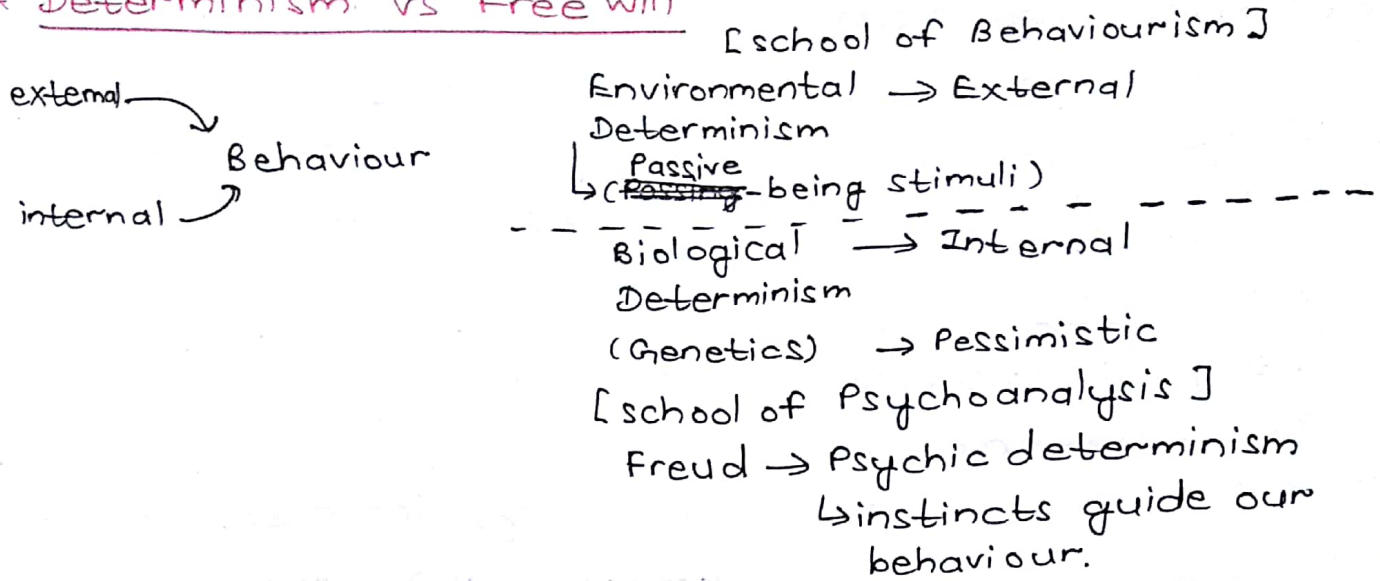 Determinism vs Free will
[school of Behaviourism]
external
Behaviour
internal
Environmental → External
Determinism
↳ (Passive being stimuli)
Biological → Internal
Determinism
(Genetics) → Pessimistic
[school of Psychoanalysis]
Freud → Psychic determinism
↳ instincts guide our
behaviour.